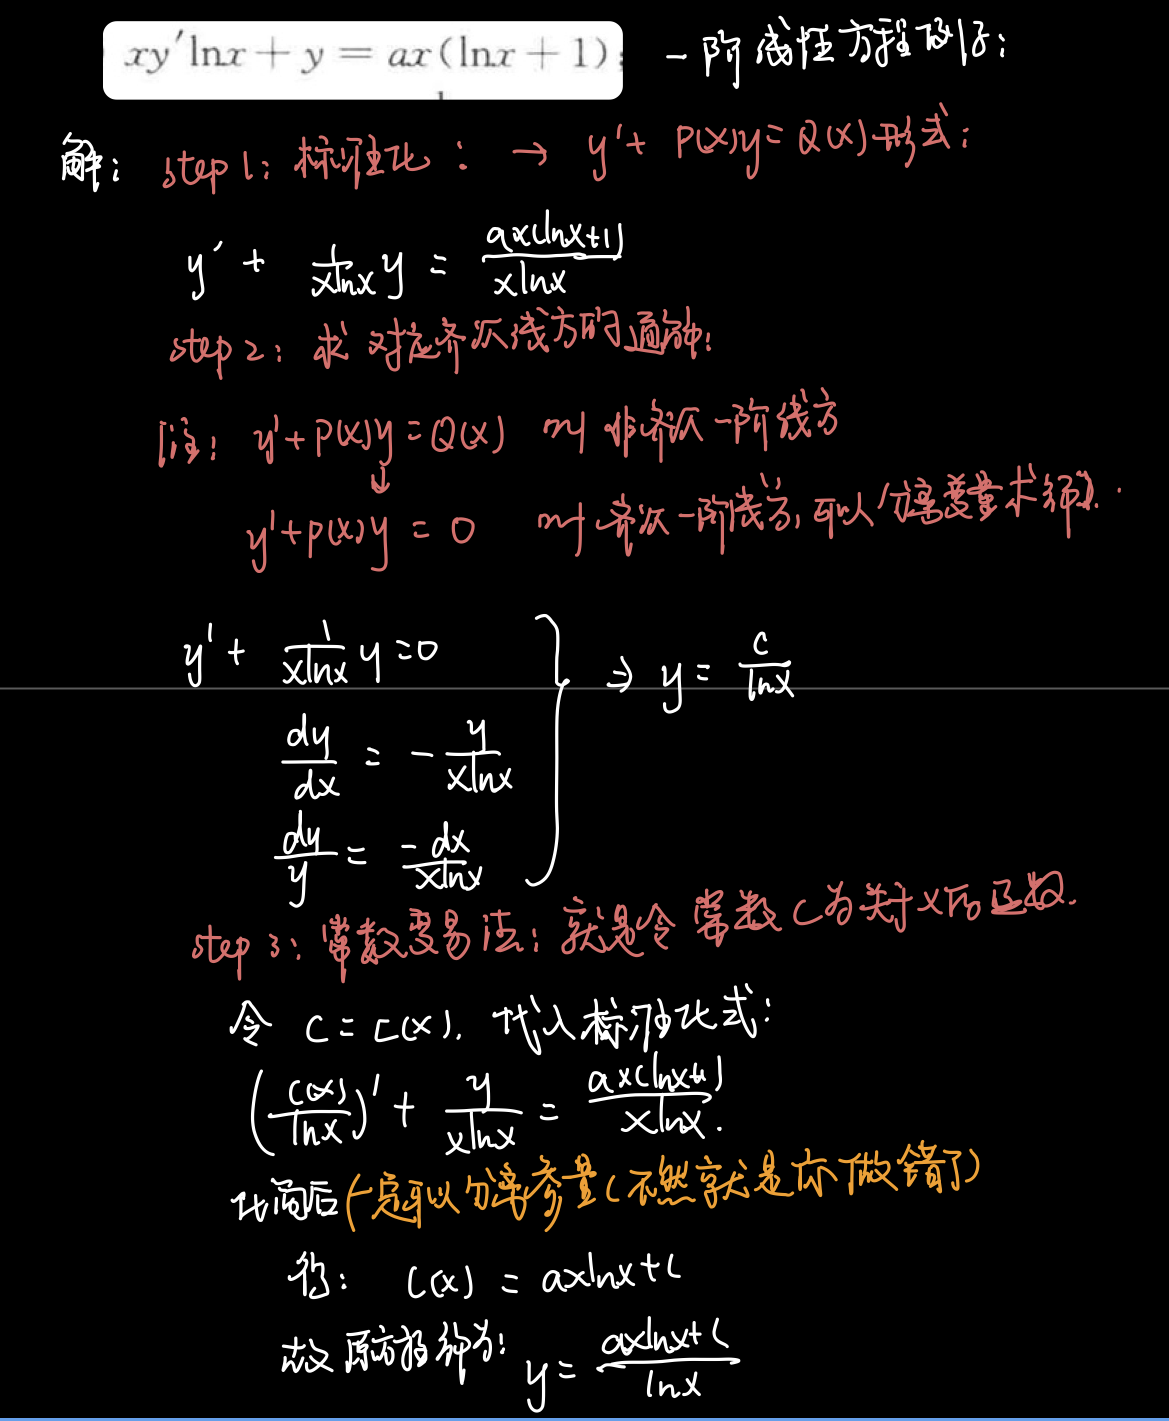 xy′lnx + y = ax(lnx + 1); 一阶线性方程的引子:
解: step 1: 标准化: → y' + P(x)y = Q(x) 形式:
y′ + 1/(xlnx) y = ax(lnx+1)/(xlnx)
step 2: 求对应齐次线方的通解:
注: y' + P(x)y = Q(x) 叫 非齐次一阶线方
↓
y' + p(x)y = 0 叫 齐次一阶线方, 可以分离变量求解.
y' + 1/(xlnx) y = 0 } ⇒ y = c/lnx
dy/dx = - y/(xlnx)
dy/y = -dx/(xlnx)
step 3: 常数变易法: 就是令 常数 C 为关于 x 的函数.
令 C = C(x). 代入标准化式:
(C(x)/lnx)' + y/(xlnx) = ax(lnx+1)/(xlnx).
化简后 (一定可以分离变量(不然就是你做错了)
得: C(x) = axlnx + C
故原方程解为: y = (axlnx + C)/lnx